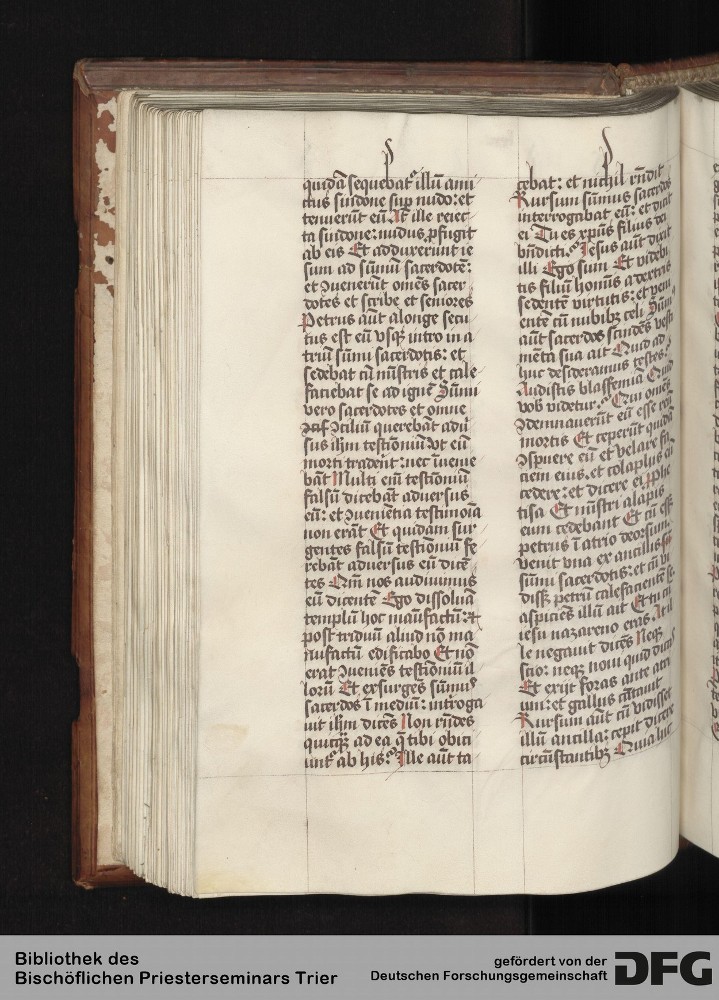 p
quidā sequebat᷑ illū ami
ctus sindone sup nudo: et
tenuerūt eū At ille reiec
ta sindone: nudus ꝓfugit
ab eis Et adduxerunt ie
sum ad sūmū sacerdotē:
et ꝯuenerūt om̄es sacer
dotes et scribe et seniores
Petrus aūt a longe secu
tus est eū vsqꝫ intro in a
triū sūmi sacerdotis: et
sedebat cū mīstris et cale
faciebat se ad ignē Sūmi
vero sacerdotes et omne
ꝯciliū querebāt adū
sus ihm testīoniū vt eū
morti traderēt: nec īuenie
bāt Multi em̄ testīoniū
falsū dicebāt adversus
eū: et ꝯuenīetia testimoīa
non erāt Et quidam sur
gentes falsū testīoniū fe
rebāt adversus eū dicē
tes Qm̄ nos audiuimus
eū dicentē Ego dissoluā
templū hoc manufactū: et
post triduū aliud nō ma
nufactū edificabo Et nō
erat ꝯueniēs testīoniū il
lorū Et exsurgēs sūmus
sacerdos ī mediū: introga
uit ihm dicēs Non rn̄des
quicqꝫ ad ea q̄ tibi obici
unt᷑ ab his? Ille aūt ta
p
cebat: et nichil rn̄dit
Rursum sūmus sacerdos
interrogabat eū: et dicit
ei Tu es xpūs filius dei
bn̄dicti? Iesus aūt dixit
illi Ego sum Et videbi
tis filiū hoīnis a dextris
sedentē virtutis: et veni
entē cū nubibꝫ celi Sūm
aūt sacerdos scindēs vesti
mēta sua ait Quid ad
huc desideramus testes?
Audistis blasfemiā Quid
vob̄ videtur? Qui om̄es
ꝯdemnauerūt eū esse reū
mortis Et ceperūt quidā
ꝯspuere eū et velare fa
ciem eius. et colaphis eū
cedere: et dicere ei ꝓphe
tisa Et mīstri alapis
eum cedebant Et cū eēt
petrus ī atrio deorsum.
venit vna ex ancillis
sūmi sacerdotis: et cū vi
disꝫ petrū calefacientē se
aspiciēs illū ait Et tu cū
iesu nazareno eras At il
le negauit dicēs Neqꝫ
scio: neqꝫ noui quid dicas
Et exijt foras ante atri
um: et gallus cātauit
Rursum aūt cū vidisset
illū ancilla: cepit dicere
circūstantibꝫ Quia hic
Bibliothek des
Bischöflichen Priesterseminars Trier
gefördert von der
Deutschen Forschungsgemeinschaft
DFG